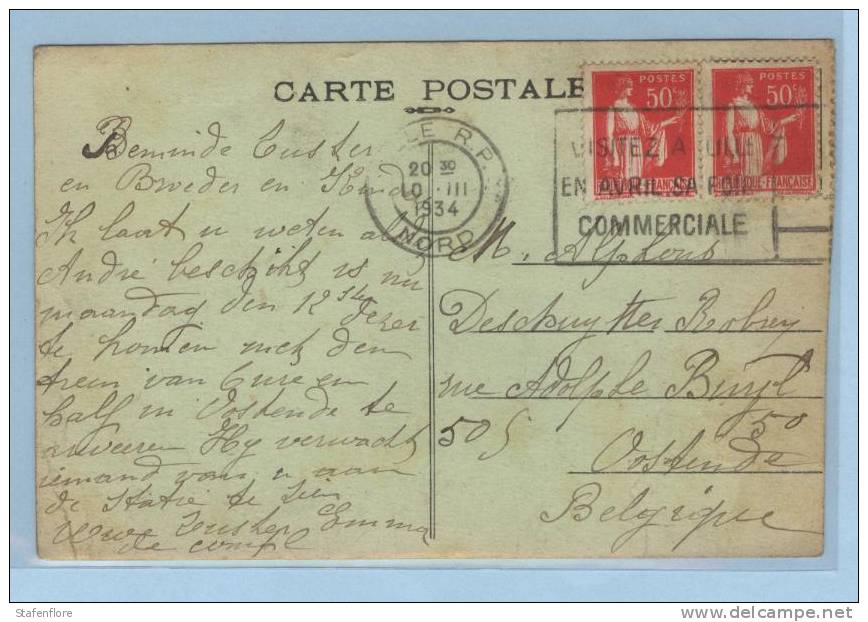 CARTE POSTALE
POSTES
50c
POSTES
50c
RÉPUBLIQUE-FRANÇAISE
LILLE R.P.
20 30
10 - III
1934
NORD
VISITEZ A LILLE
EN AVRIL SA FOIRE
COMMERCIALE
Beminde Zuster
en Broeder en Kind
Ik laat u weten als
André beschikt is nu
maandag den 12 ste dezer
te komen met den
trein van Eure en
half in Oostende te
arriveeren Hij verwacht
iemand van u aan
de Statie te zien
Uwe Zuster Emma
de compl
M. Alphons
Deschuytter Robrey
rue Adolphe Buyl
50 S 50
Oostende
Belgique
Stafenflore
delcampe.net